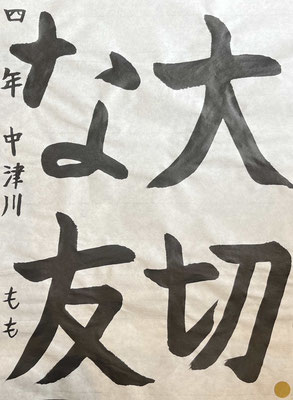 大切
な友
四年 中津川 もも